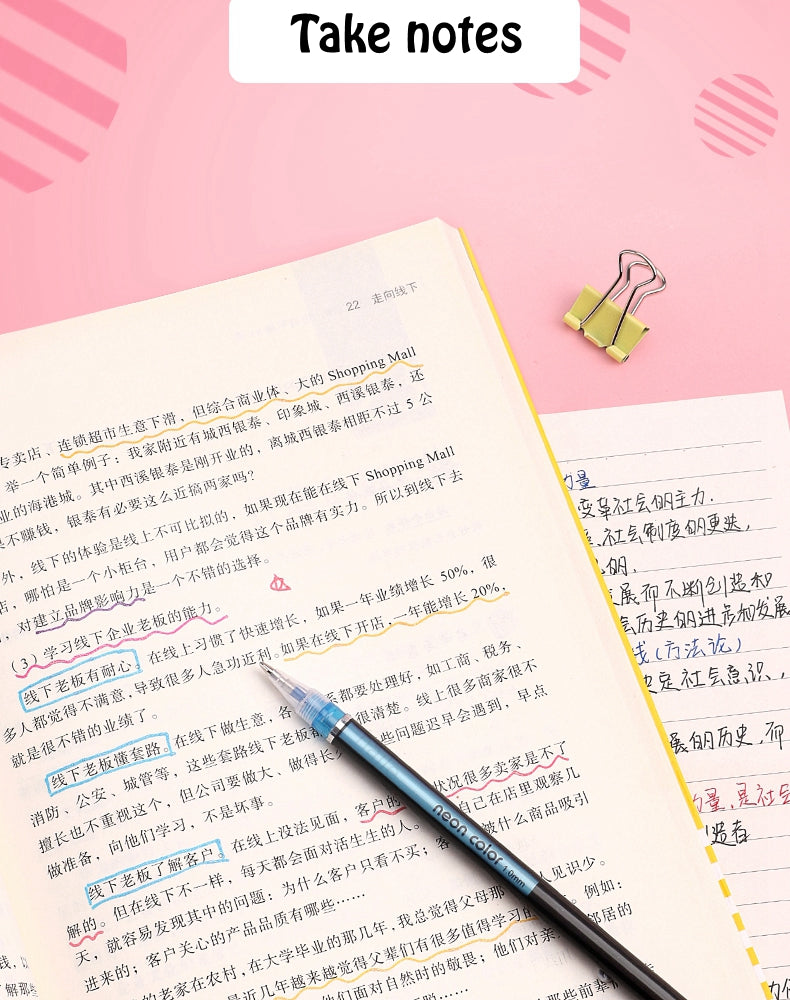 Take notes
22 走向线下
专卖店、连锁超市生意下滑，但综合商业体、大的 Shopping Mall
举一个简单例子：我家附近有城西银泰、印象城、西溪银泰，还
业的海港城。其中西溪银泰是刚开业的，离城西银泰相距不过 5 公
不赚钱，银泰有必要这么近搞两家吗？
外，线下的体验是线上不可比拟的，如果现在能在线下 Shopping Mall
店，哪怕是一个小柜台，用户都会觉得这个品牌有实力。所以到线下去
，对建立品牌影响力是一个不错的选择。
（3）学习线下企业老板的能力。
线下老板有耐心。在线上习惯了快速增长，如果一年业绩增长 50%，很
多人都觉得不满意，导致很多人急功近利。如果在线下开店，一年能增长 20%，
就是很不错的业绩了。
线下老板懂套路。在线下做生意，各 系都要处理好，如工商、税务、
消防、公安、城管等，这些套路线下老板都 很清楚。线上很多商家很不
擅长也不重视这个，但公司要做大、做得长 些问题迟早会遇到，早点
做准备，向他们学习，不是坏事。
线下老板了解客户。在线上没法见面，客户的 状况很多卖家是不了
解的。但在线下不一样，每天都会面对活生生的人。 自己在店里观察几
天，就容易发现其中的问题：为什么客户只看不买；客 被什么商品吸引
进来的；客户关心的产品品质有哪些……
人见识少。
的老家在农村，在大学毕业的那几年，我总觉得父母那 例如：
是近几年越来越觉得父辈们有很多值得学习的 邻居的
他们面对自然时的敬畏；他们对亲
那些前辈
neon color 1.0mm
力量
变革社会的主力.
社会制度的更迭,
的.
展而不断创造和
会历史的进步和发展
线(方法论)
决定社会意识,
展的历史,而
力量,是社会
造者